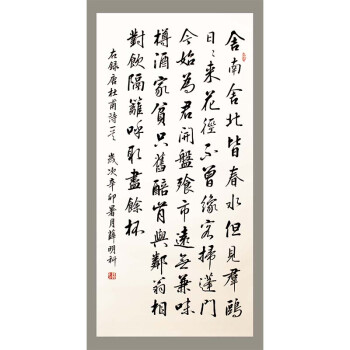 舍南舍北皆春水但見羣鷗
日〻來花徑不曾緣客掃蓬門
今始為君開盤飧市遠無兼味
樽酒家貧只舊醅肯與鄰翁相
對飲隔籬呼取盡餘杯
右録唐杜甫詩一首 歲次辛卯暑月薛明科